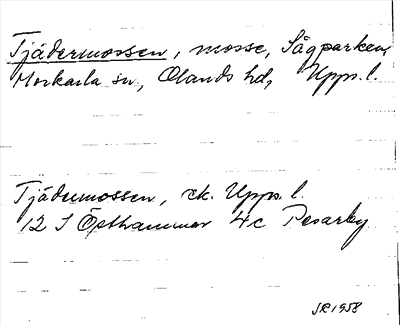 Tjädermossen, mosse, Sågparken,
Morkarla sn, Olands hd, Upps. l.
Tjädermossen, ek. Upps. l.
12 I Östhammar 4c Pesarby
JR 1958